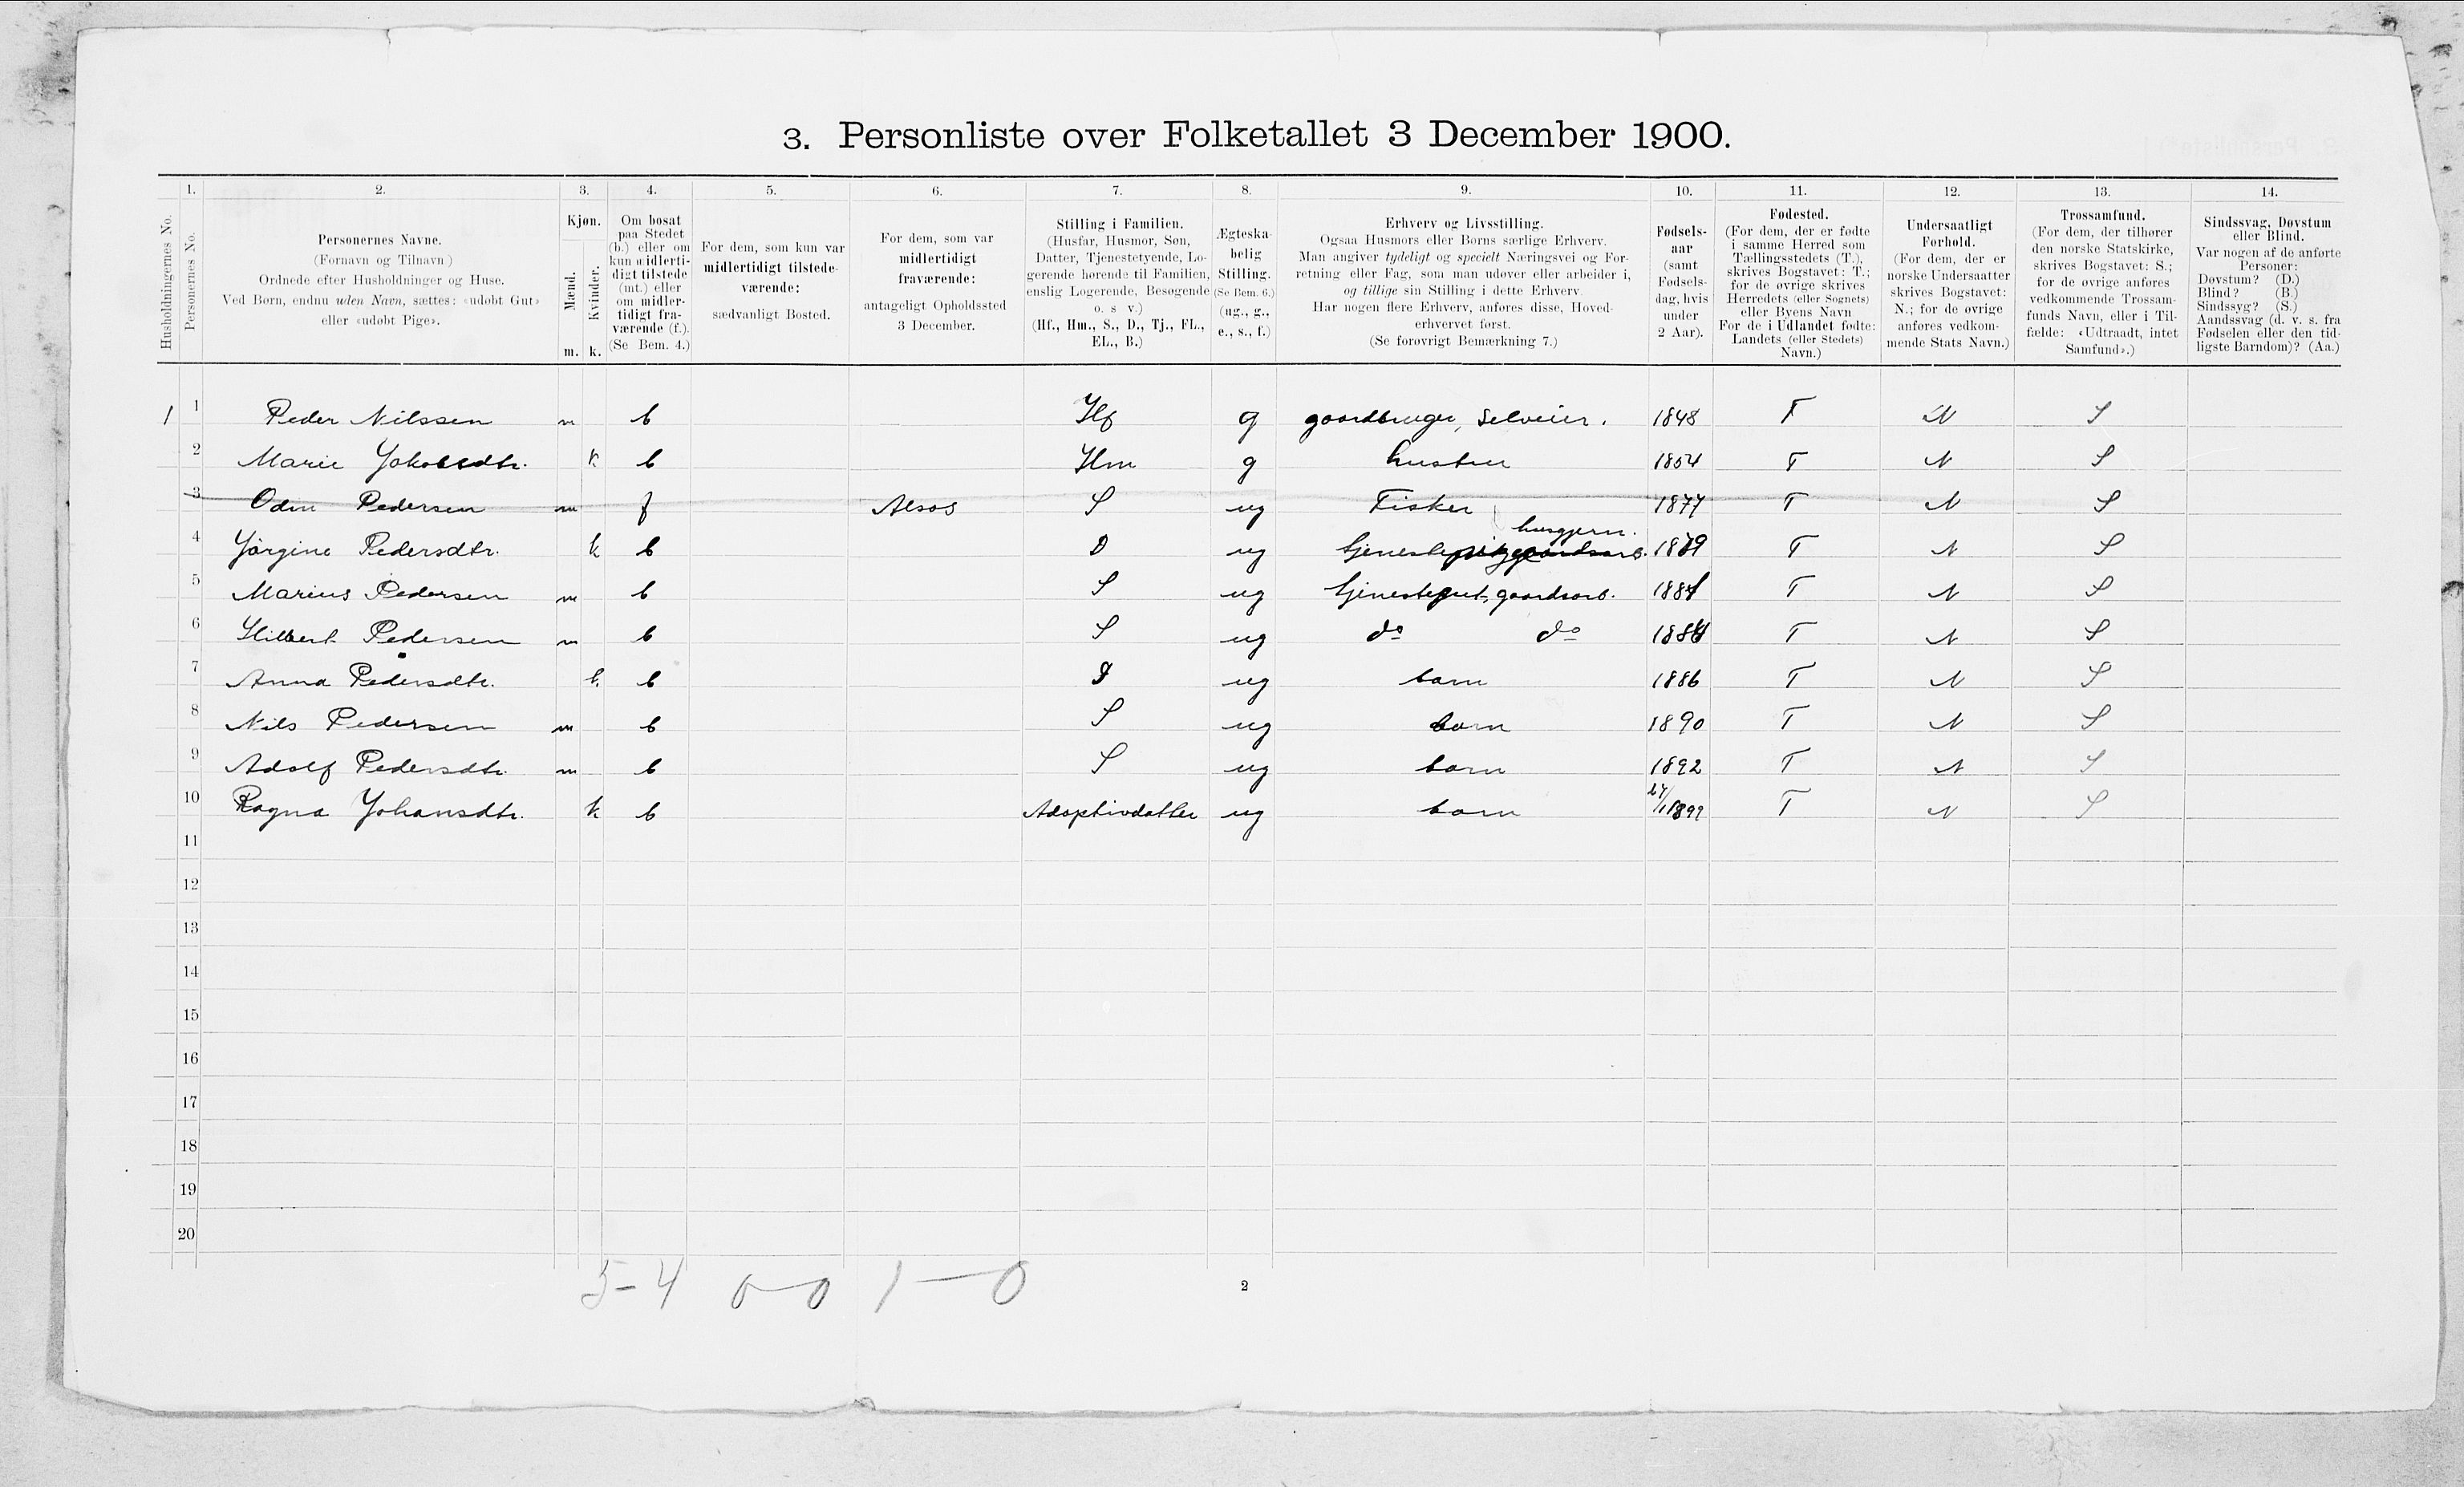 3. Personliste over Folketallet 3 December 1900.
1. 2. 3. 4. 5. 6. 7. 8. 9. 10. 11. 12. 13. 14.
Husholdningernes No.
Personernes No.
Personernes Navne.
(Fornavn og Tilnavn)
Ordnede efter Husholdninger og Huse.
Ved Børn, endnu uden Navn, sættes: «udøbt Gut»
eller «udøbt Pige».
Kjøn.
Mænd.
Kvinder.
m. k.
Om bosat
paa Stedet
(b.) eller om
kun midlerti-
digt tilstede
(mt.) eller
om midler-
tidigt fra-
værende (f.).
(Se Bem. 4.)
For dem, som kun var
midlertidigt tilstede-
værende:
sædvanligt Bosted.
For dem, som var
midlertidigt
fraværende:
antageligt Opholdssted
3 December.
Stilling i Familien.
(Husfar, Husmor, Søn,
Datter, Tjenestetyende, Lo-
gerende hørende til Familien,
enslig Logerende, Besøgende
o. s v.)
(Hf., Hm., S., D., Tj., FL.,
EL., B.)
Ægteska-
belig
Stilling.
(Se Bem. 6.)
(ug., g.,
e., s., f.)
Erhverv og Livsstilling.
Ogsaa Husmors eller Børns særlige Erhverv.
Man angiver tydeligt og specielt Næringsvei og For-
retning eller Fag, som man udøver eller arbeider i,
og tillige sin Stilling i dette Erhverv.
Har nogen flere Erhverv, anføres disse, Hoved-
erhvervet først.
(Se forøvrigt Bemærkning 7.)
Fødsels-
aar
(samt
Fødsels-
dag, hvis
under
2 Aar).
Fødested.
(For dem, der er fødte
i samme Herred som
Tællingsstedets (T.),
skrives Bogstavet: T.;
for de øvrige skrives
Herredets (eller Sognets)
eller Byens Navn
For de i Udlandet fødte:
Landets (eller Stedets)
Navn.)
Undersaatligt
Forhold.
(For dem, der er
norske Undersaatter
skrives Bogstavet:
N.; for de øvrige
anføres vedkom-
mende Stats Navn.)
Trossamfund.
(For dem, der tilhører
den norske Statskirke,
skrives Bogstavet: S.;
for de øvrige anføres
vedkommende Trossam-
funds Navn, eller i Til-
fælde: «Udtraadt, intet
Samfund».)
Sindssvag, Døvstum
eller Blind.
Var nogen af de anførte
Personer:
Døvstum? (D.)
Blind? (B.)
Sindssyg? (S.)
Aandssvag (d. v. s. fra
Fødselen eller den tid-
ligste Barndom)? (Aa.)
1 1 Peder Nilssen m b Hf g gaardbruger, Selveier. 1848 T N S
2 Marie Jakobsdtr. k b Hm g hustru 1854 T N S
3 Odin Pedersen m f Alsos S ug Fisker 1877 T N S
husgjern.
4 Jørgine Pedersdtr. k b D ug tjenestepige gaardsarb. 1879 T N S
5 Marius Pedersen m b S ug tjenestegut, gaardsarb. 1881 T N S
6 Hilbert Pedersen m b S ug do do 1884 T N S
7 Anna Pedersdtr. k b D ug barn 1886 T N S
8 Nils Pedersen m b S ug barn 1890 T N S
9 Adolf Pedersdtr. m b S ug barn 1892 T N S
10 Ragna Johansdtr. k b Adoptivdatter ug barn 1899 T N S
11
12
13
14
15
16
17
18
19
20
5-4 0-0 1-0
2